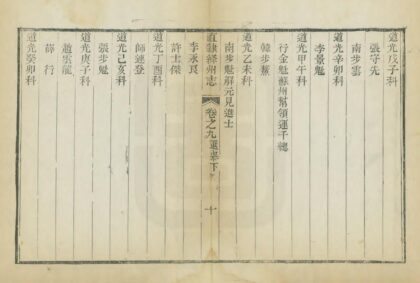 道光戊子科
張守先
南步雲
道光辛卯科
李景魁
道光甲午科
行金魁 蘇州幫領運千總
韓步鰲
道光乙未科
南步魁 解元見進士
直隸絳州志 卷之九 選舉下 十
李永良
許士傑
道光丁酉科
師連登
道光己亥科
張步魁
道光庚子科
趙雲龍
薛行
道光癸卯科